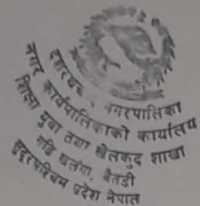 दशरथचन्द नगरपालिका
नगर कार्यपालिकाको कार्यालय
शिक्षा युवा तथा खेलकुद शाखा
गढि खलंगा, बैतडी
सुदूरपश्चिम प्रदेश नेपाल